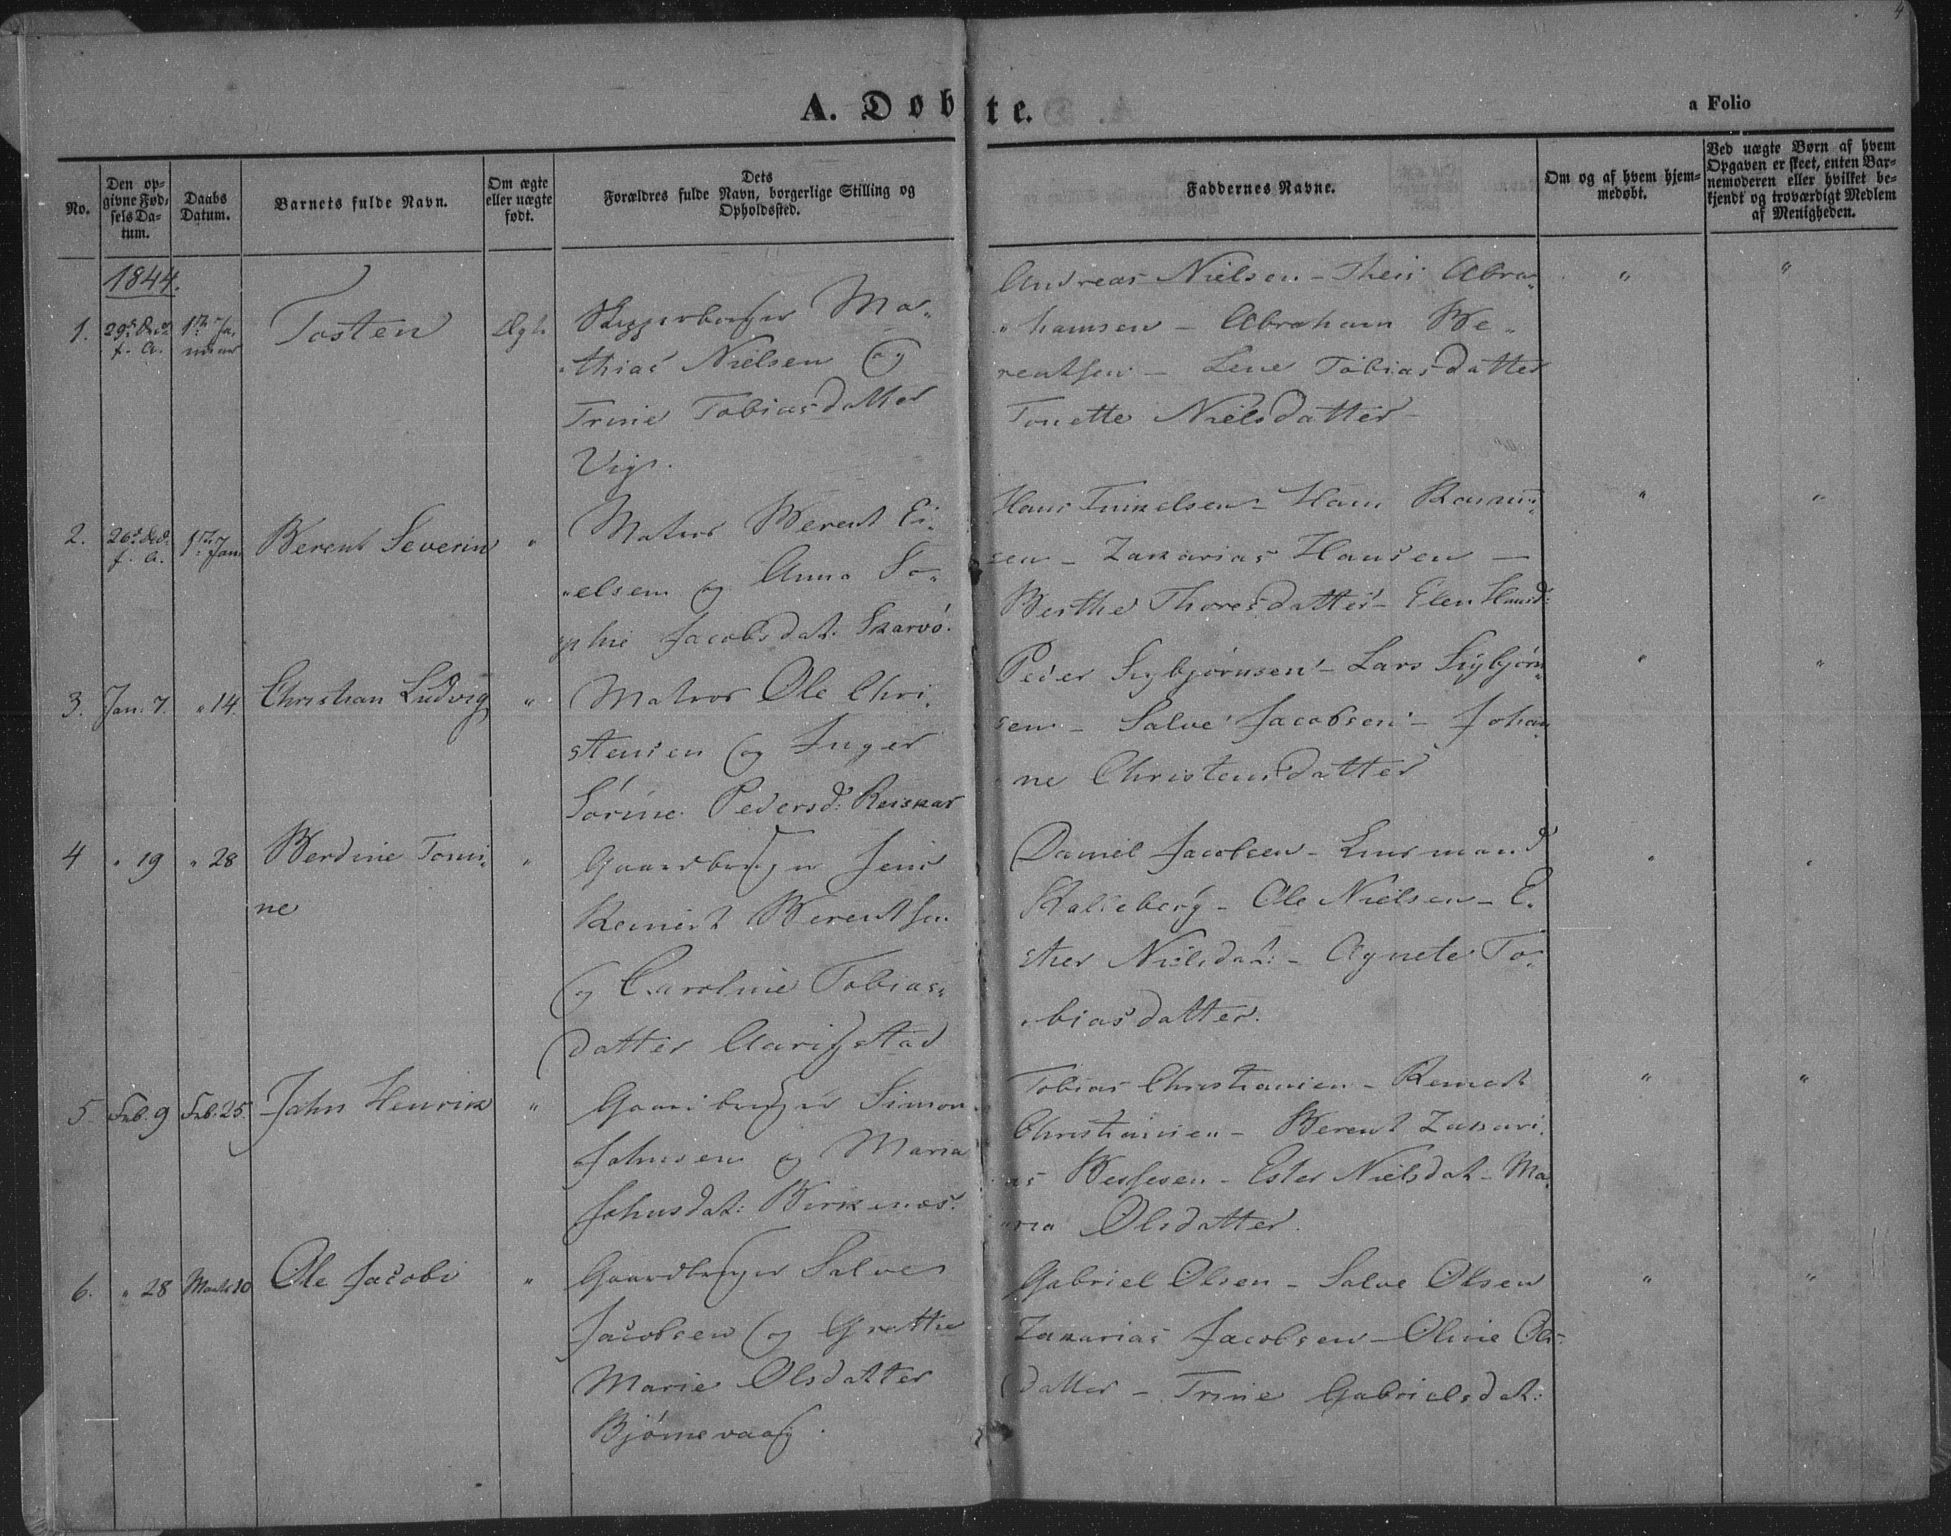 4
A. Døbte.
a Folio
No.
Den op-
givne Fød-
sels Da-
tum.
Daabs
Datum.
Barnets fulde Navn.
Om ægte
eller uægte
født.
Dets
Forældres fulde Navn, borgerlige Stilling og
Opholdssted.
Faddernes Navne.
Om og af hvem hjem-
medøbt.
Ved uægte Børn af hvem
Opgaven er skeet, enten Bar-
nemoderen eller hvilket be-
kjendt og troværdigt Medlem
af Menigheden.
1844.
1.
29de Dec.
f. A.
1ste Ja-
nuar
Tosten
Ægte
Skipperborger Ma-
thias Nielsen og
Trine Tobiasdatter
Vigs.
Andreas Nielsen - Theis Abra-
hamsen - Abraham Be-
rentsen - Lene Tobiasdatter
Tonette Nielsdatter -
" "
2.
26de Dec.
f. A.
1ste Jan
Berent Severin
"
Matros Berent Ei-
elsen og Anna So-
phie Jacobsdat. Skarvø.
Hans - Hans
sen - Zakarias Hansen -
Berthe Thoresdatter - Elen Hansd:
" "
3. Jan. 7. " 14. Christian Ludvig "
Matros Ole Chri-
stensen og Inger
Sørine Pedersd: Reiskar
Peder Sigbjørnsen - Lars Sigbjørn-
sen - Salve Jacobsen - Johan-
ne Christensdatter
" "
4 " 19 " 28
Berdine Tomi-
ne
"
Gaardbruger Jens
Reinert Berentsen
og Caroline Tobias-
datter Aarigstad
Daniel Jacobsen - Lensmand
Kalleberg - Ole Nielsen - E-
ster Nielsdat: - Agnete To-
biasdatter.
" "
5. Feb. 9 Feb. 25. John Henrik "
Gaardbruger Simon
Johnsen og Maria
Johnsdat: Birkenæs.
Tobias Christiansen - Reinert
Christiansen - Berent Zakari-
as Bessesen - Ester Nielsdat - Ma-
ria Olsdatter.
" "
6. " 28 Marts 10 Ole Jacob "
Gaardbruger Salve
Jacobsen og Grethe
Marie Olsdatter
Bjørnevaag.
Gabriel Olsen - Salve Olsen
Zakarias Jacobsen - Oline Ols-
datter - Trine Gabrielsdat:
" "